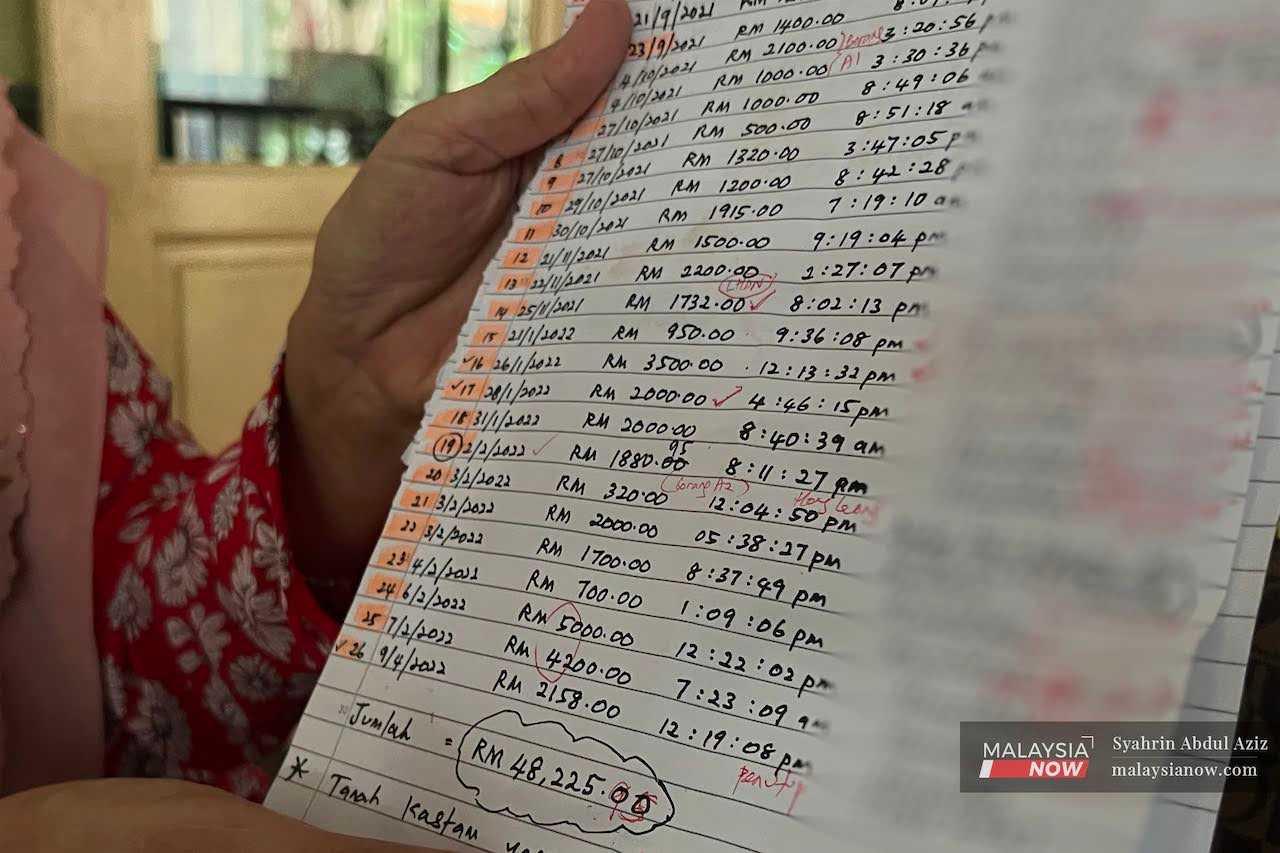 21/9/2021 RM
23/9/2021 RM 1400.00
4/10/2021 RM 2100.00 Borang 3:20:56 pm
4/10/2021 RM 1000.00 A1 3:30:36 pm
27/10/2021 RM 1000.00 8:49:06
8 27/10/2021 RM 500.00 8:51:18 am
9 27/10/2021 RM 1320.00 3:47:05 pm
10 29/10/2021 RM 1200.00 8:42:28 pm
11 30/10/2021 RM 1915.00 7:19:10 am
12 21/11/2021 RM 1500.00 9:19:04 pm
13 22/11/2021 RM 2200.00 2:27:07 pm
(LHDN)
14 25/11/2021 RM 1732.00 ✓ 8:02:13 pm
15 21/1/2022 RM 950.00 9:36:08 pm
✓16 26/1/2022 RM 3500.00 12:13:32 pm
✓17 28/1/2022 RM 2000.00 ✓ 4:46:15 pm
18 31/1/2022 RM 2000.00 8:40:39 am
19 2/2/2022 ✓ RM 1880.00 95 8:11:27 am
(borang A2) Hong Leong
20 3/2/2022 RM 320.00 12:04:50 pm
21 3/2/2022 RM 2000.00 05:38:27 pm
22 3/2/2022 RM 1700.00 8:37:49 pm
23 4/2/2022 RM 700.00 1:09:06 pm
24 6/2/2022 RM 5000.00 12:22:02 pm
25 7/2/2022 RM 4200.00 7:23:09 am
✓26 9/4/2022 RM 2158.00 12:19:08 pm
Jumlah = RM 48,225.00
* Tanah Kastam
MALAYSIA NOW
Syahrin Abdul Aziz
malaysianow.com